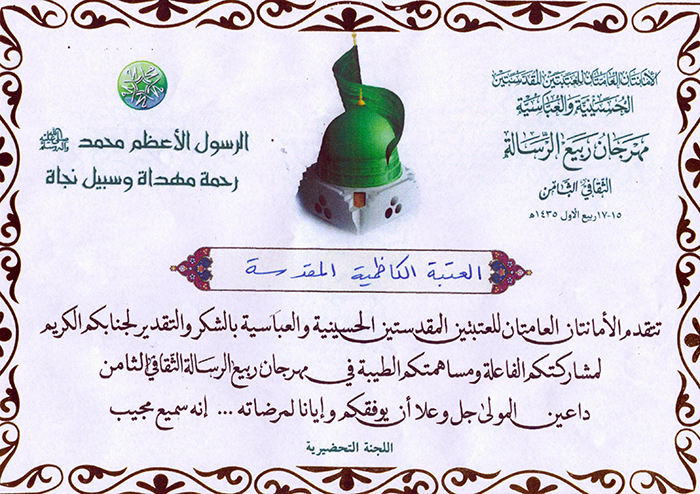 الأمانتان العامتان للعتبتين المقدستين
الحسينية والعباسية
مهرجان ربيع الرسالة
الثقافي الثامن
١٥-١٧ ربيع الاول ١٤٣٥هـ
محمد
الرسول الأعظم محمد ﷺ
رحمة مهداة وسبيل نجاة
العتبة الكاظمية المقدسة
تتقدم الأمانتان العامتان للعتبتين المقدستين الحسينية والعباسية بالشكر والتقدير لجنابكم الكريم
لمشاركتكم الفاعلة ومساهمتكم الطيبة في مهرجان ربيع الرسالة الثقافي الثامن
داعين المولى جل وعلا أن يوفقكم وإيانا لمرضاته ... إنه سميع مجيب
اللجنة التحضيرية